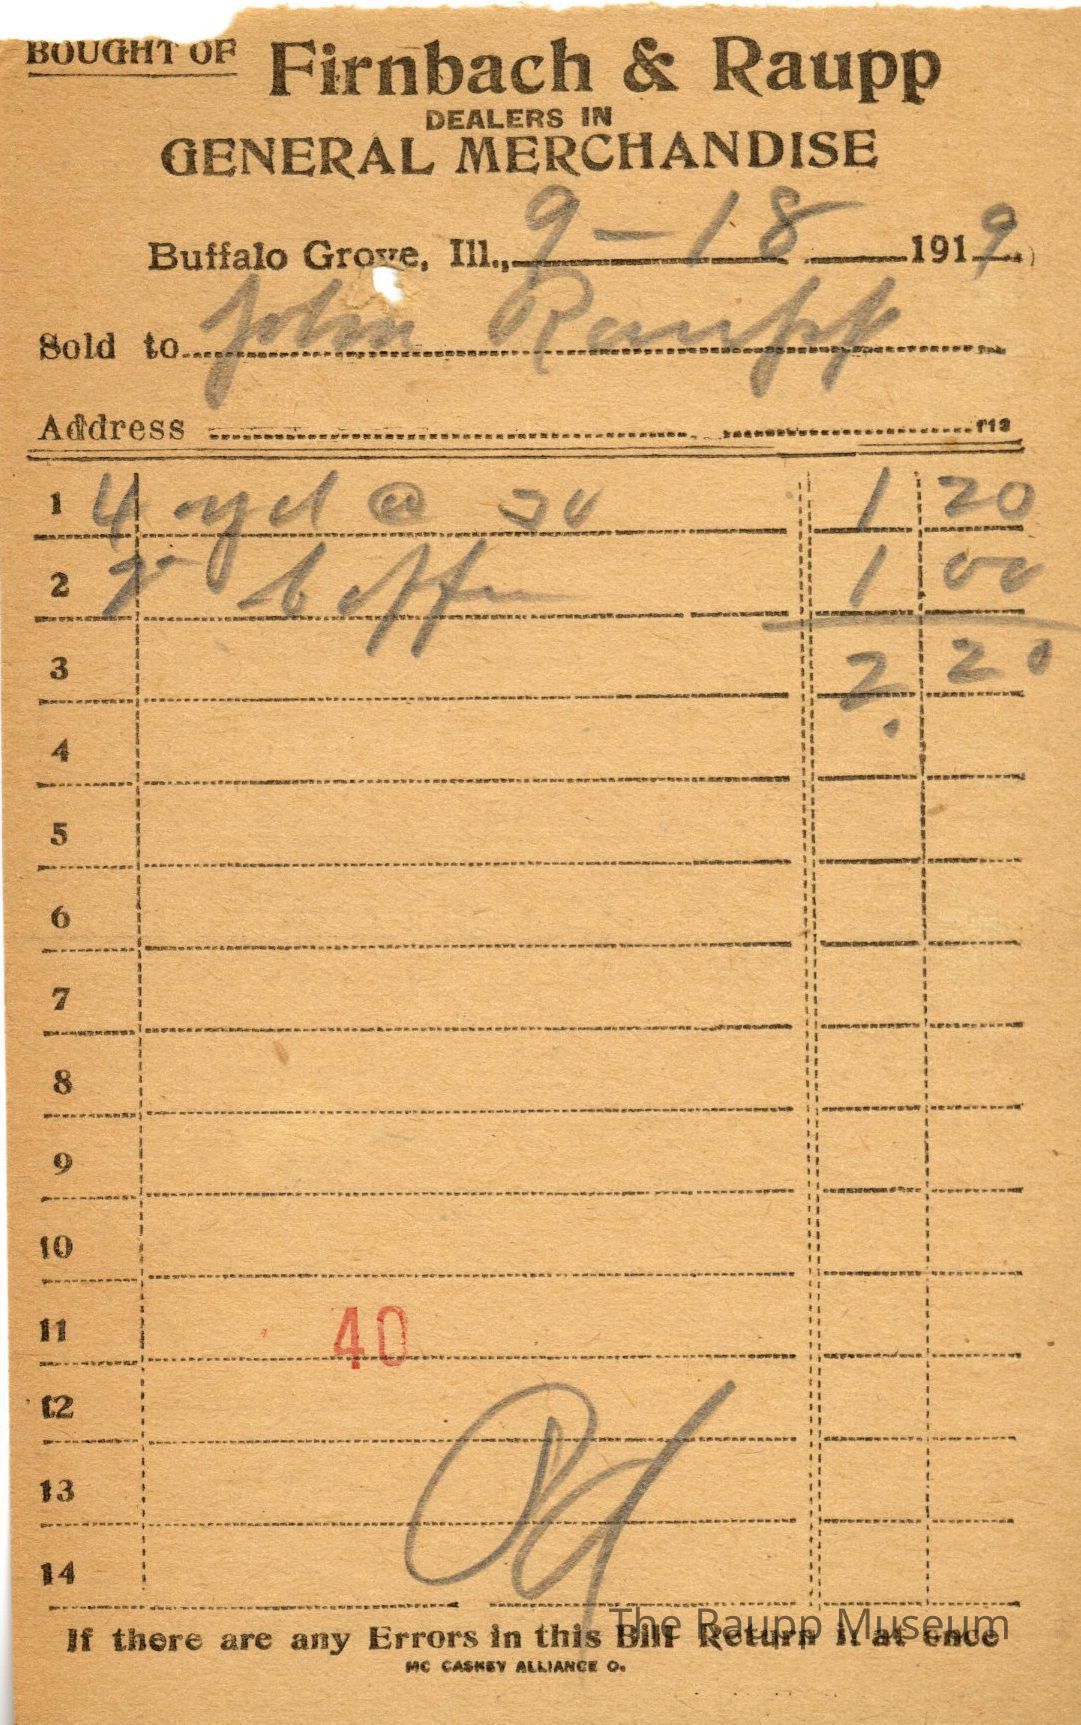 BOUGHT OF Firnbach & Raupp
DEALERS IN
GENERAL MERCHANDISE
Buffalo Grove, Ill., 9-18 1919
Sold to John Raupp
Address
1 4 yd @ 30 1 20
2 Coffee 1 00
3 2.20
4
5
6
7
8
9
10
11 40
12
13
14
Pd
If there are any Errors in this Bill Return it at once
MC CASKEY ALLIANCE O.
The Raupp Museum